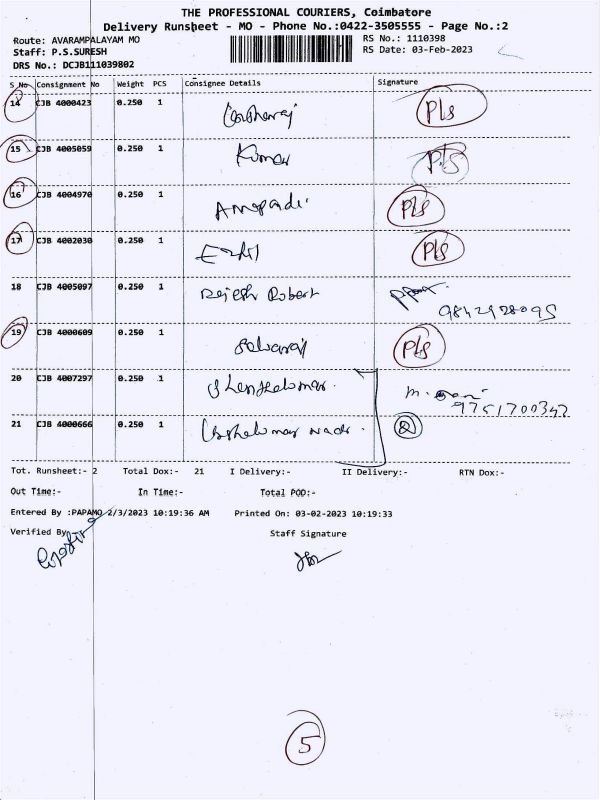 THE PROFESSIONAL COURIERS, Coimbatore
Delivery Runsheet - MO - Phone No.:0422-3505555 - Page No.:2
Route: AVARAMPALAYAM MO RS No.: 1110398
Staff: P.S.SURESH RS Date: 03-Feb-2023
DRS No.: DCJB111039802
S No Consignment No Weight PCS Consignee Details Signature
14 CJB 4000423 0.250 1 Pls
15 CJB 4005059 0.250 1 Kumar Pls
16 CJB 4004970 0.250 1 Pls
17 CJB 4002030 0.250 1 Pls
18 CJB 4005097 0.250 1 Rajesh Robert
9842928095
19 CJB 4000609 0.250 1 Selvaraj Pls
20 CJB 4007297 0.250 1 M.
9751700342
21 CJB 4000666 0.250 1
Tot. Runsheet:- 2 Total Dox:- 21 I Delivery:- II Delivery:- RTN Dox:-
Out Time:- In Time:- Total POD:-
Entered By :PAPAMO 2/3/2023 10:19:36 AM Printed On: 03-02-2023 10:19:33
Verified By Staff Signature
5